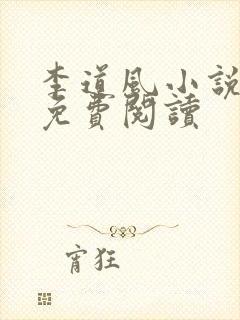 李道風小說
免費閱讀
宵狂